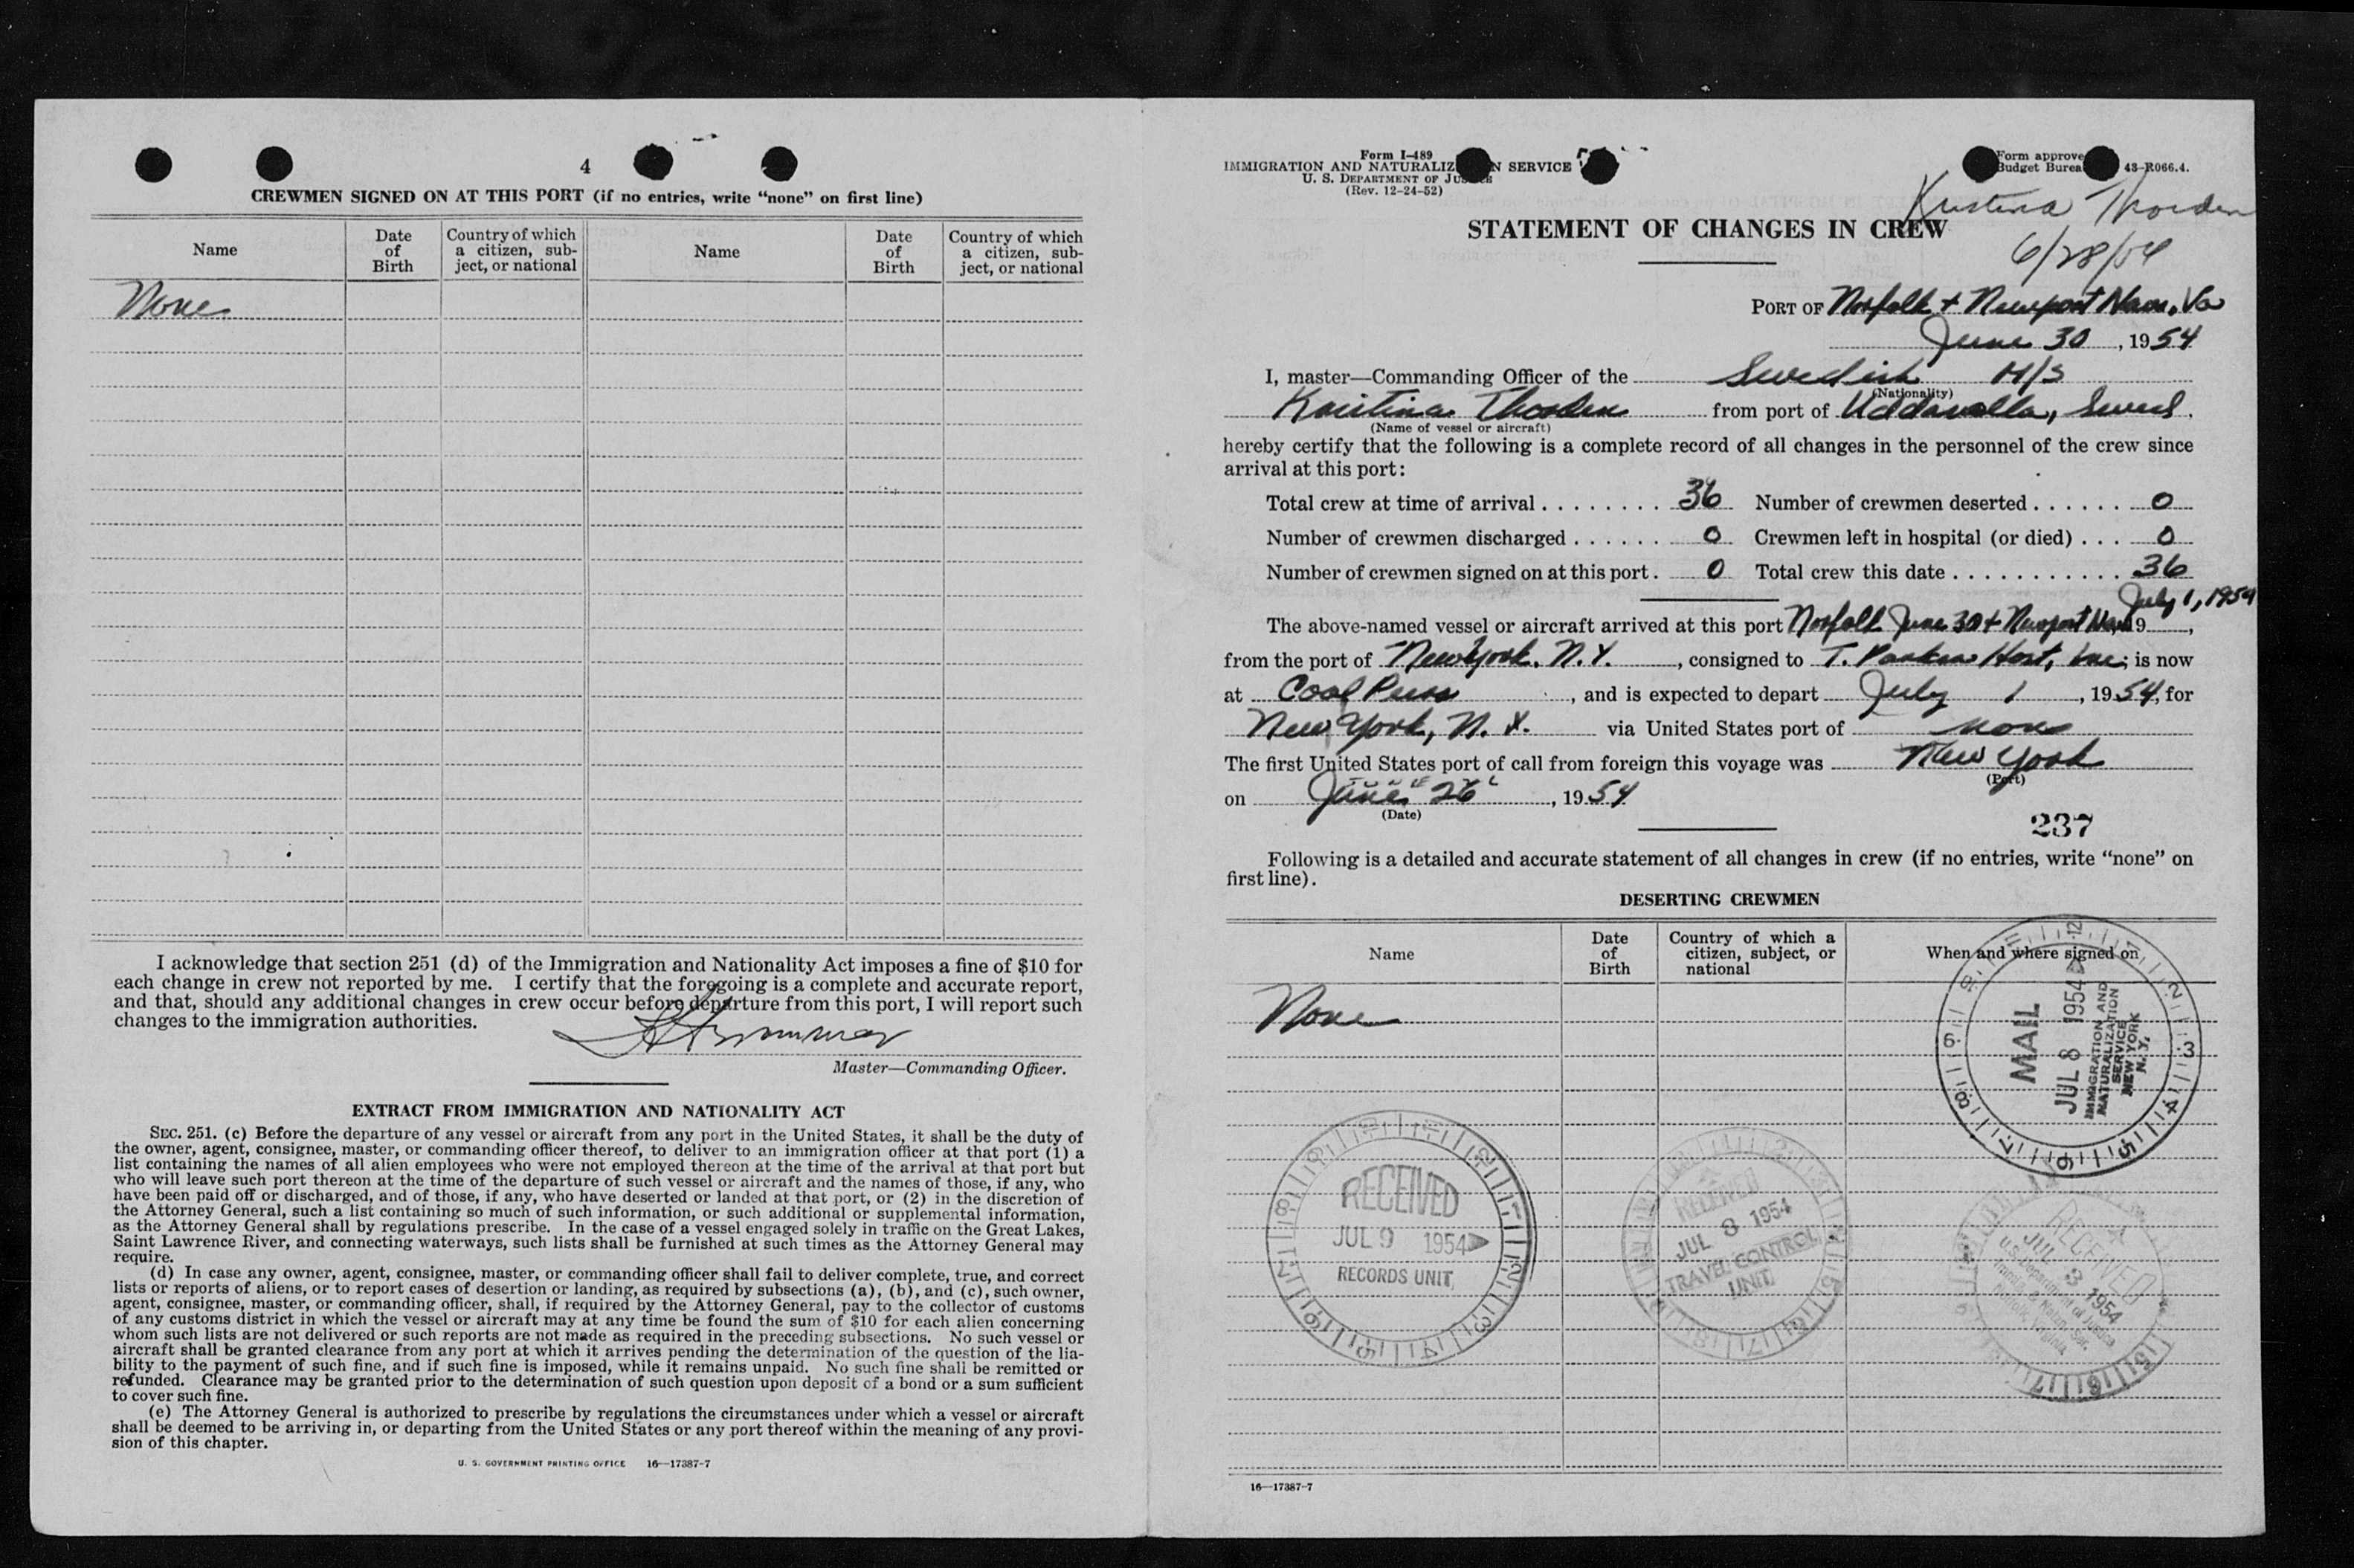 4
CREWMEN SIGNED ON AT THIS PORT (if no entries, write “none” on first line)
Name
Date of Birth
Country of which a citizen, subject, or national
Name
Date of Birth
Country of which a citizen, subject, or national
None
I acknowledge that section 251 (d) of the Immigration and Nationality Act imposes a fine of $10 for
each change in crew not reported by me. I certify that the foregoing is a complete and accurate report,
and that, should any additional changes in crew occur before departure from this port, I will report such
changes to the immigration authorities.
Master—Commanding Officer.
EXTRACT FROM IMMIGRATION AND NATIONALITY ACT
SEC. 251. (c) Before the departure of any vessel or aircraft from any port in the United States, it shall be the duty of
the owner, agent, consignee, master, or commanding officer thereof, to deliver to an immigration officer at that port (1) a
list containing the names of all alien employees who were not employed thereon at the time of the arrival at that port but
who will leave such port thereon at the time of the departure of such vessel or aircraft and the names of those, if any, who
have been paid off or discharged, and of those, if any, who have deserted or landed at that port, or (2) in the discretion of
the Attorney General, such a list containing so much of such information, or such additional or supplemental information,
as the Attorney General shall by regulations prescribe. In the case of a vessel engaged solely in traffic on the Great Lakes,
Saint Lawrence River, and connecting waterways, such lists shall be furnished at such times as the Attorney General may
require.
(d) In case any owner, agent, consignee, master, or commanding officer shall fail to deliver complete, true, and correct
lists or reports of aliens, or to report cases of desertion or landing, as required by subsections (a), (b), and (c), such owner,
agent, consignee, master, or commanding officer, shall, if required by the Attorney General, pay to the collector of customs
of any customs district in which the vessel or aircraft may at any time be found the sum of $10 for each alien concerning
whom such lists are not delivered or such reports are not made as required in the preceding subsections. No such vessel or
aircraft shall be granted clearance from any port at which it arrives pending the determination of the question of the lia-
bility to the payment of such fine, and if such fine is imposed, while it remains unpaid. No such fine shall be remitted or
refunded. Clearance may be granted prior to the determination of such question upon deposit of a bond or a sum sufficient
to cover such fine.
(e) The Attorney General is authorized to prescribe by regulations the circumstances under which a vessel or aircraft
shall be deemed to be arriving in, or departing from the United States or any port thereof within the meaning of any provi-
sion of this chapter.
U. S. GOVERNMENT PRINTING OFFICE 16—17387-7
Form I-489
IMMIGRATION AND NATURALIZ N SERVICE
U. S. DEPARTMENT OF JUSTICE
(Rev. 12-24-52)
Form approve
Budget Burea 43-R066.4.
Kristina Thorden
6/28/54
STATEMENT OF CHANGES IN CREW
PORT OF Norfolk + Newport News, Va
June 30, 1954
I, master—Commanding Officer of the Swedish M/S
(Nationality)
Kristina Thorden from port of Uddavalla, Swed.
(Name of vessel or aircraft)
hereby certify that the following is a complete record of all changes in the personnel of the crew since
arrival at this port:
Total crew at time of arrival . . . . . . . . 36 Number of crewmen deserted . . . . . . 0
Number of crewmen discharged . . . . . . 0 Crewmen left in hospital (or died) . . . 0
Number of crewmen signed on at this port . 0 Total crew this date . . . . . . . . . . . 36
July 1, 1954
The above-named vessel or aircraft arrived at this port Norfolk June 30 + Newport News, 19 ,
from the port of New York, N.Y. , consigned to T. Parker Host, Inc; is now
at Coal Piers , and is expected to depart July 1 , 1954, for
New York, N. Y. via United States port of none
The first United States port of call from foreign this voyage was New York
(Port)
on June 26 , 1954
(Date)
237
Following is a detailed and accurate statement of all changes in crew (if no entries, write “none” on
first line).
DESERTING CREWMEN
Name
Date of Birth
Country of which a citizen, subject, or national
When and where signed on
None
MAIL
JUL 8 1954
IMMIGRATION AND
NATURALIZATION
SERVICE
NEW YORK
N. Y.
RECEIVED
JUL 9 1954
RECORDS UNIT
RECEIVED
JUL 8 1954
TRAVEL CONTROL
UNIT
RECEIVED
JUL 3 1954
U.S. Department of Justice
Norfolk, Virginia
16—17387-7